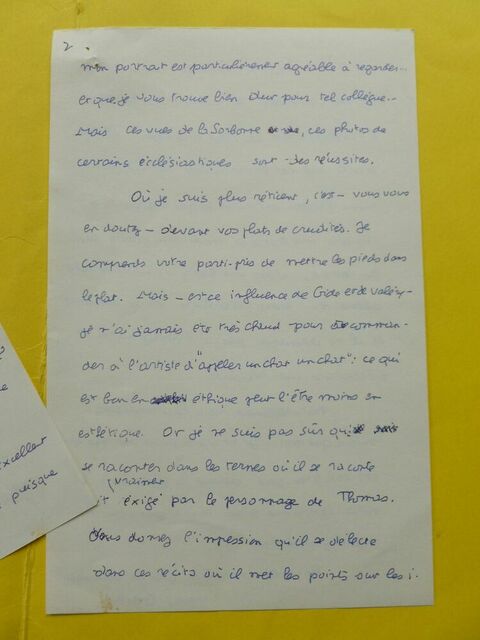 2.
mon portrait est particulièrement agréable à regarder...
et que je vous trouve bien dur pour tel collègue...
Mais ces vues de la Sorbonne, ces photos de
certains ecclésiastiques sont des réussites.
Où je suis plus réticent, c'est - vous vous
en doutez - devant vos plats de crudités. Je
comprends votre parti-pris de mettre les pieds dans
le plat. Mais - est-ce influence de Gide et de Valéry -
je n'ai jamais été très chaud pour comman-
der à l'artiste d'"appeler un chat un chat": ce qui
est bon en éthique peut l'être moins en
esthétique. Or je ne suis pas sûr qu'
se raconter dans les termes où il se raconte
vraiment
exigé par le personnage de Thomas.
Vous donnez l'impression qu'il se délecte
dans ces récits où il met les points sur les i.
excellent
puisque